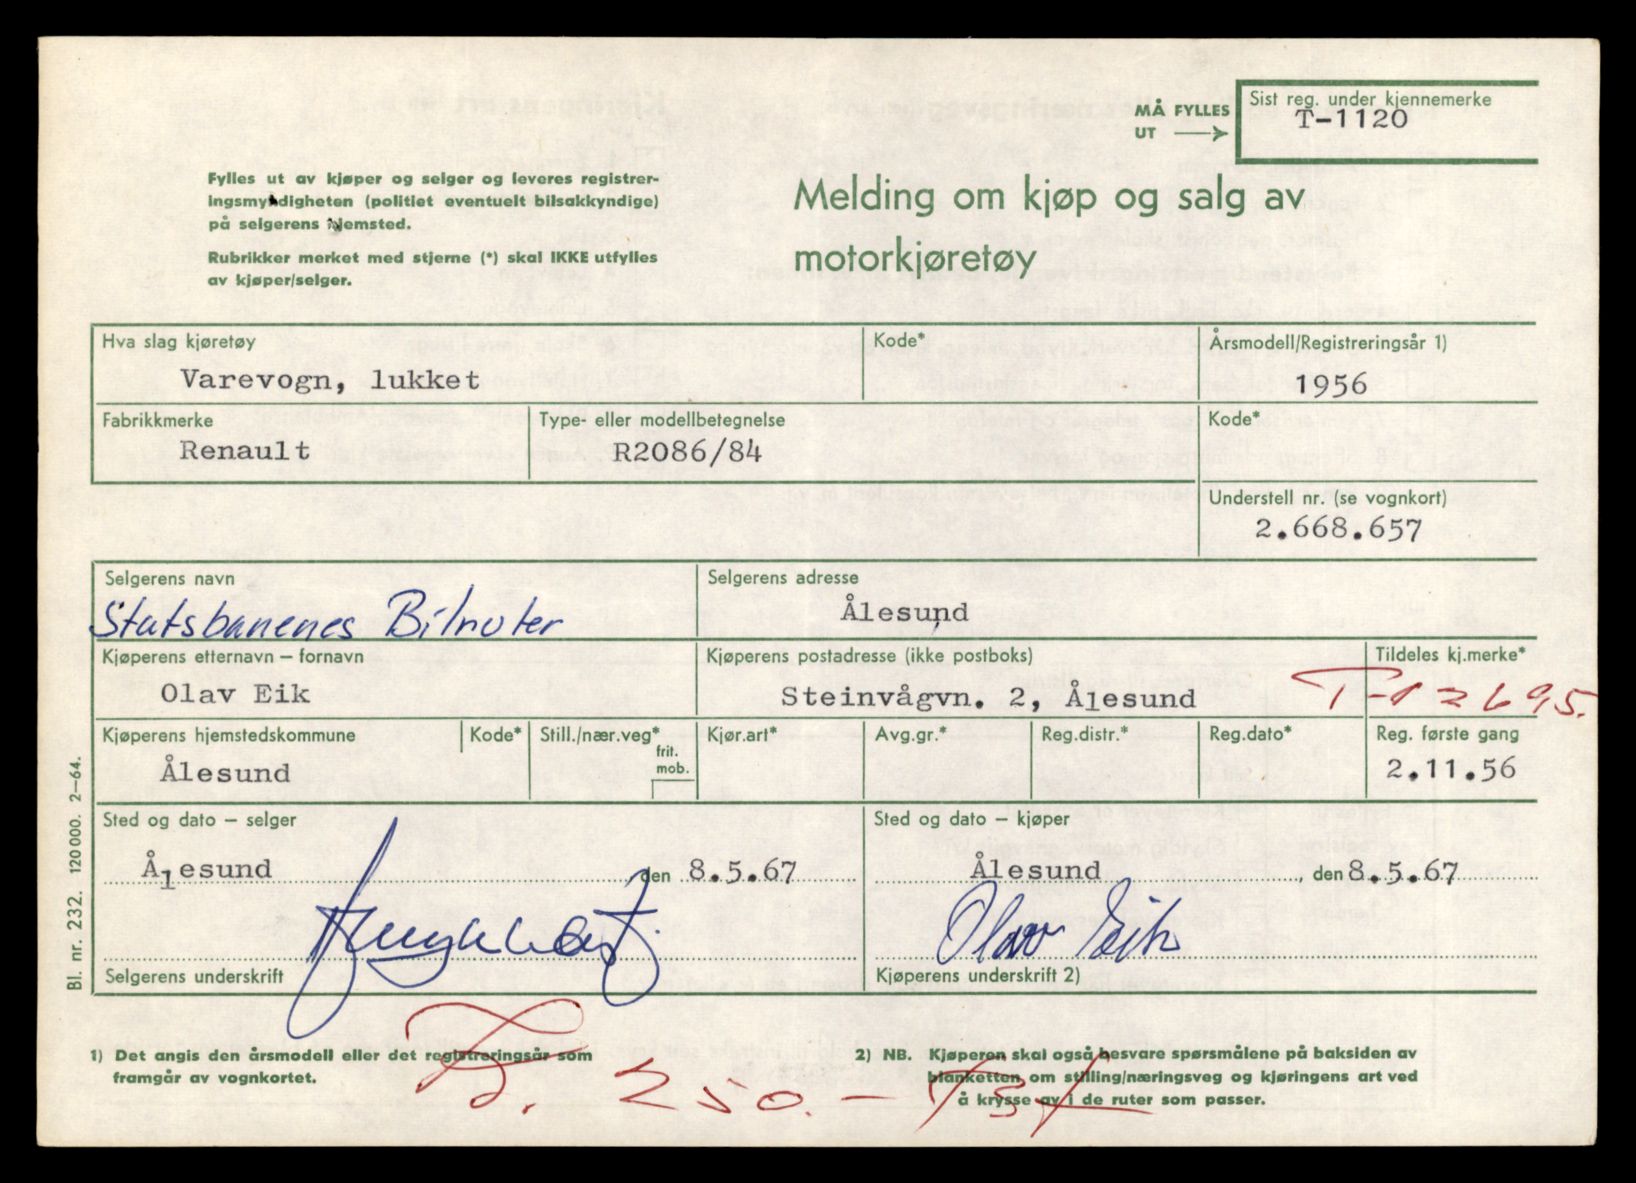 MÅ FYLLES UT → Sist reg. under kjennemerke
T-1120
Fylles ut av kjøper og selger og leveres registrer-
ingsmyndigheten (politiet eventuelt bilsakkyndige)
på selgerens hjemsted.
Rubrikker merket med stjerne (*) skal IKKE utfylles
av kjøper/selger.
Melding om kjøp og salg av
motorkjøretøy
Hva slag kjøretøy Kode* Årsmodell/Registreringsår 1)
Varevogn, lukket 1956
Fabrikkmerke Type- eller modellbetegnelse Kode*
Renault R2086/84
Understell nr. (se vognkort)
2.668.657
Selgerens navn Selgerens adresse
Statsbanenes Bilruter Ålesund
Kjøperens etternavn – fornavn Kjøperens postadresse (ikke postboks) Tildeles kj.merke*
Olav Eik Steinvågvn. 2, Ålesund T-12695.
Kjøperens hjemstedskommune Kode* Still./nær.veg* frit. mob. Kjør.art* Avg.gr.* Reg.distr.* Reg.dato* Reg. første gang
Ålesund 2.11.56
Sted og dato – selger Sted og dato – kjøper
Ålesund den 8.5.67 Ålesund, den 8.5.67
Olav Eik
Selgerens underskrift Kjøperens underskrift 2)
1) Det angis den årsmodell eller det registreringsår som
framgår av vognkortet.
2) NB. Kjøperen skal også besvare spørsmålene på baksiden av
blanketten om stilling/næringsveg og kjøringens art ved
å krysse av i de ruter som passer.
250.-
Bl. nr. 232. 120000. 2–64.